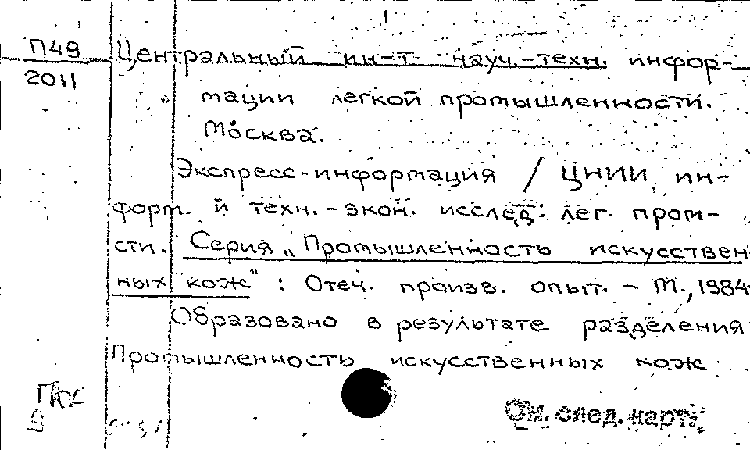 П49 Центральный ин-т науч.-техн. инфор-
2011 мации легкой промышленности.
Москва.
Экспресс-информация / ЦНИИ ин-
форм. и техн.-экон. исслед. лег. пром-
сти. Серия „Промышленность искусствен
ных кож" : Отеч. произв. опыт. - М., 1984
Образовано в результате разделения
Промышленность искусственных кож
См. след. карт.